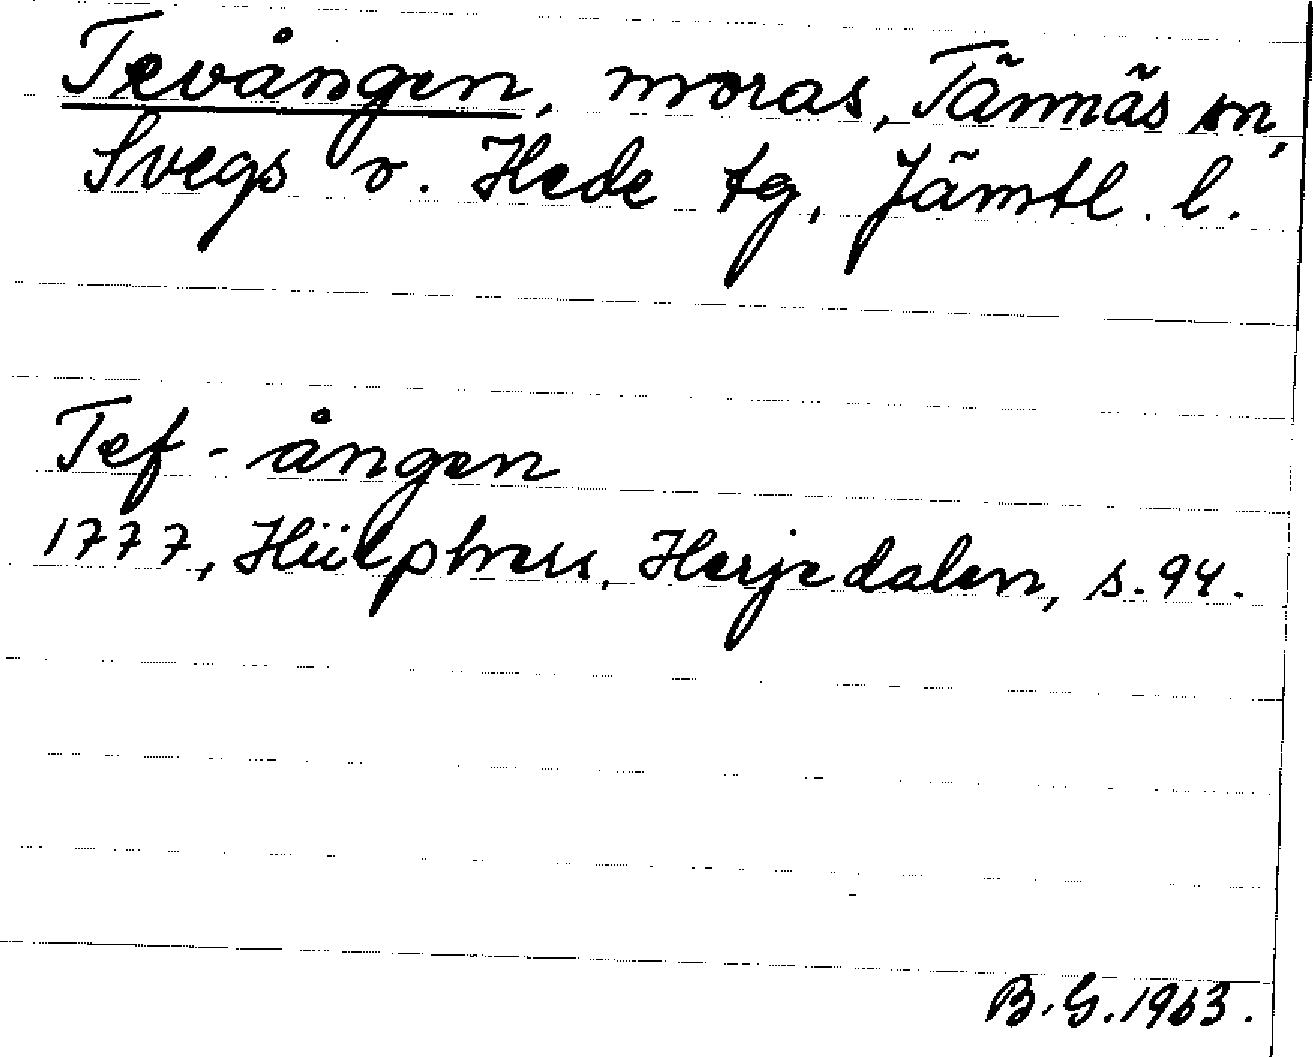 Tevången, moras, Tännäs sn,
Svegs o. Hede tg, Jämtl. l.
Tef-ången
1777, Hülphers, Herjedalen, s. 94.
B.G. 1963.